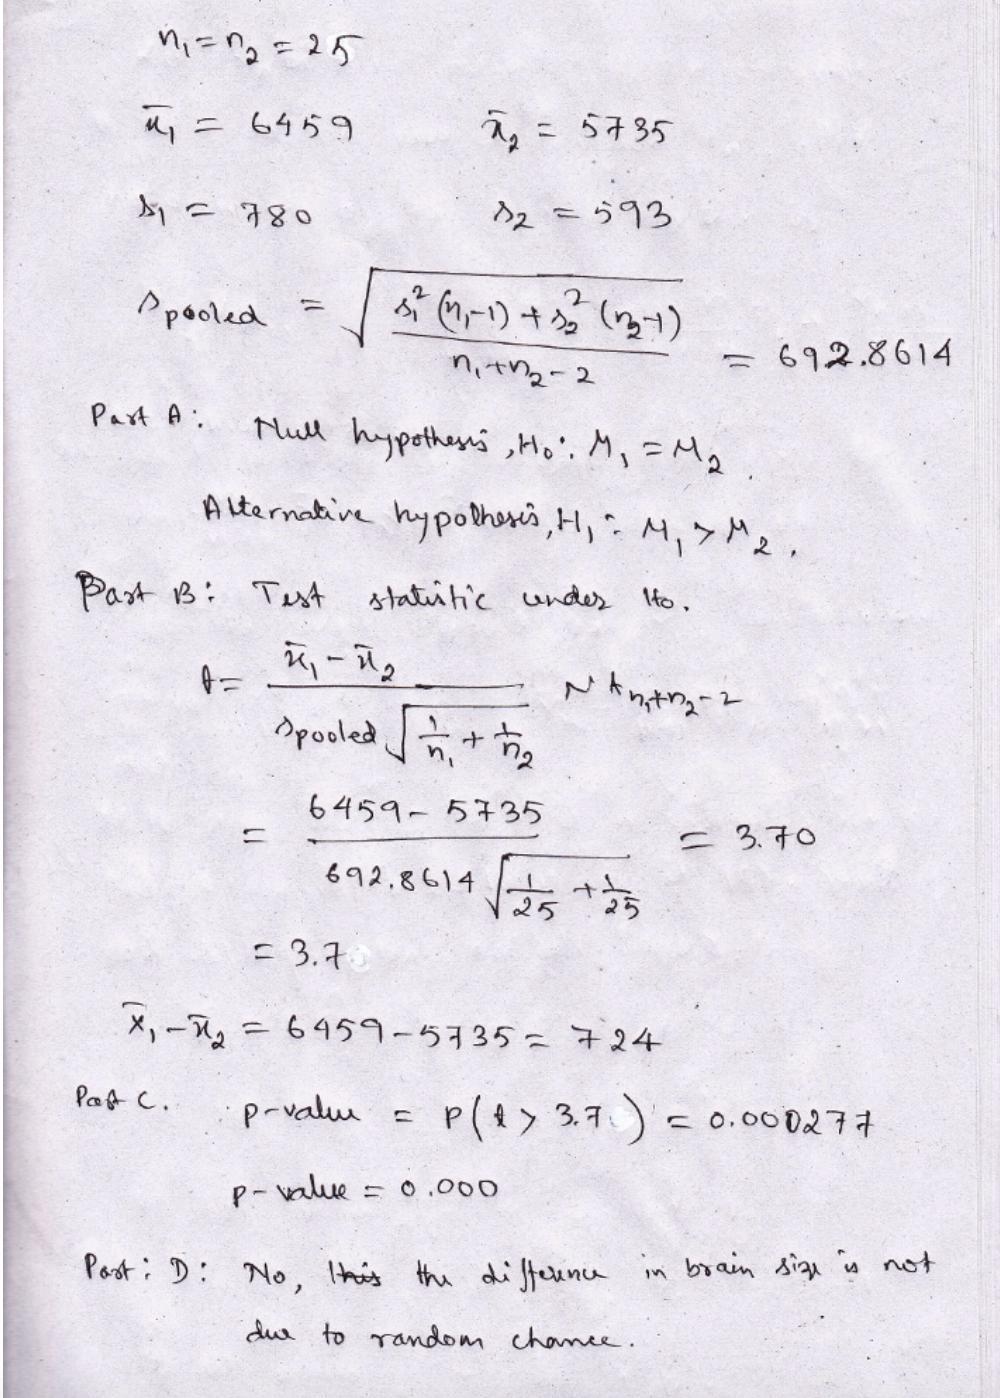 n₁ = n₂ = 25
x̄₁ = 6459    x̄₂ = 5735
s₁ = 780    s₂ = 593
s pooled = √( (s₁² (n₁-1) + s₂² (n₂-1)) / (n₁+n₂-2) ) = 692.8614
Part A: Null hypothesis, H₀: M₁ = M₂.
Alternative hypothesis, H₁: M₁ > M₂.
Part B: Test statistic under H₀.
t = (x̄₁ - x̄₂) / (s pooled √(1/n₁ + 1/n₂)) ~ t n₁+n₂-2
= (6459 - 5735) / (692.8614 √(1/25 + 1/25)) = 3.70
= 3.7
x̄₁ - x̄₂ = 6459 - 5735 = 724
Part C. p-value = P(t > 3.7) = 0.000277
p-value = 0.000
Part: D: No, the difference in brain size is not
due to random chance.